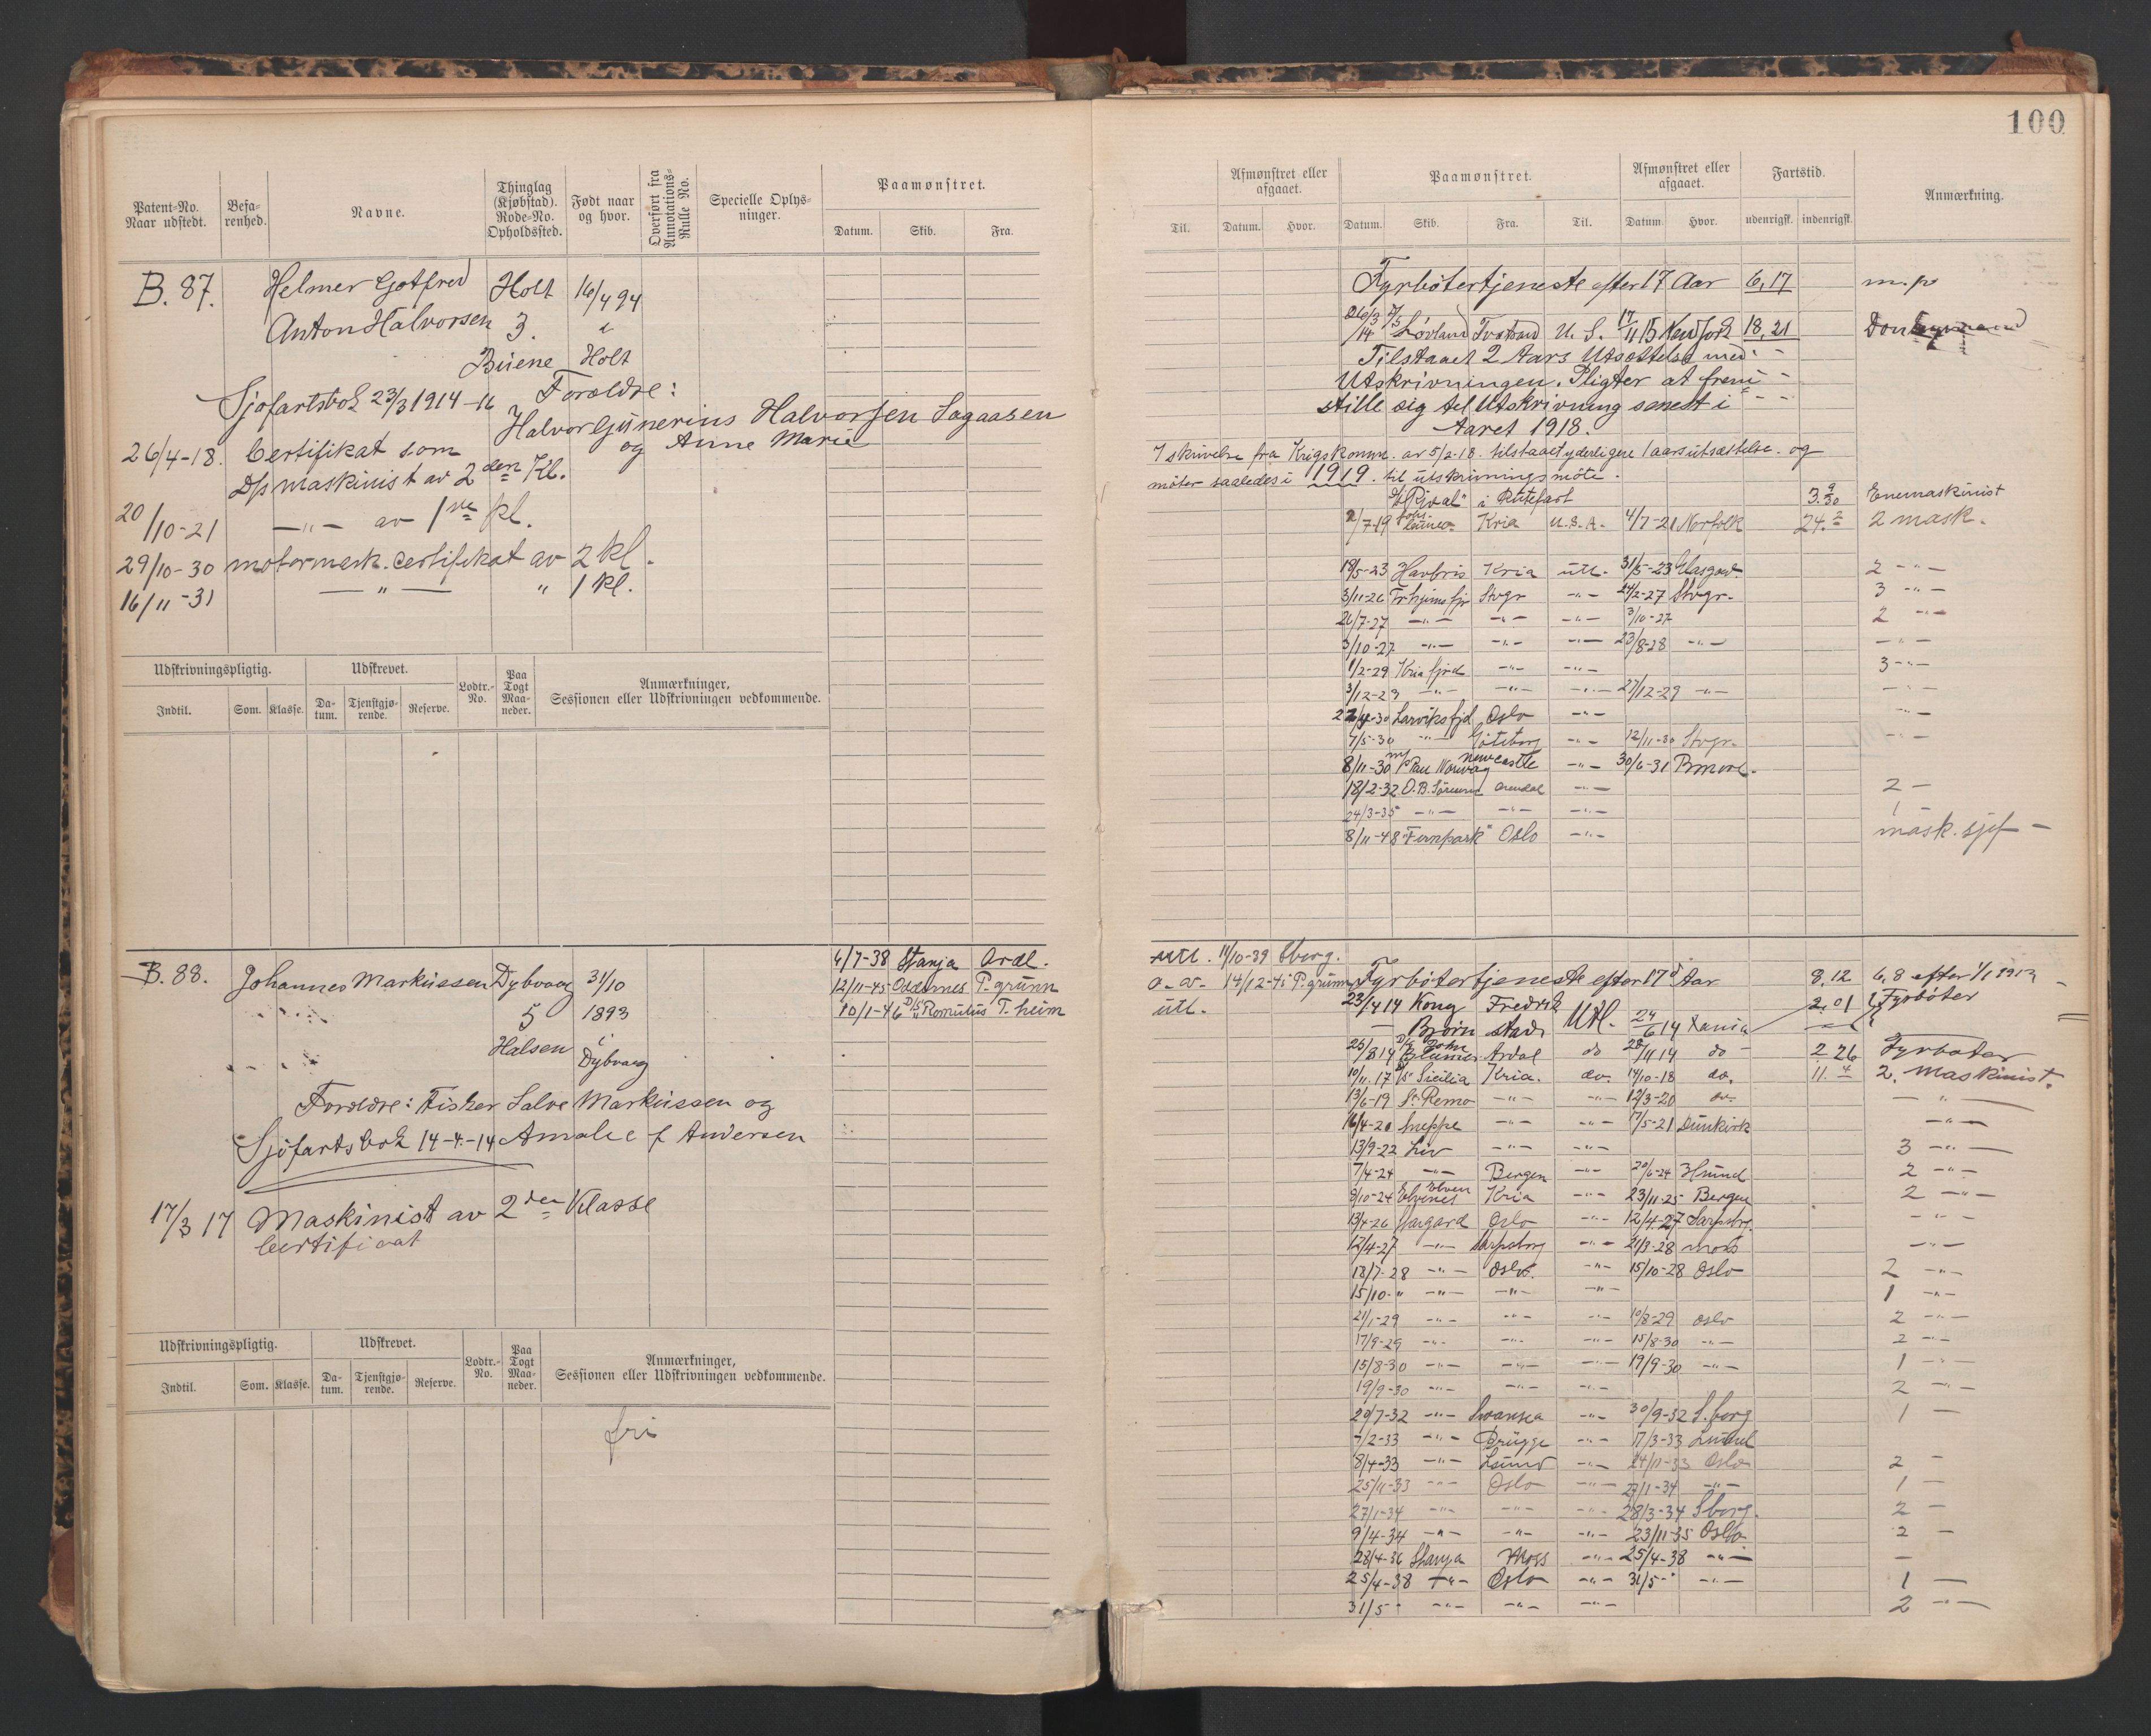 100
Patent-No. Naar udstedt.
Befarenhed.
Navne.
Thinglag (Kjøbstad). Rode-No. Opholdssted.
Født naar og hvor.
Overført fra Annotations-Rulle No.
Specielle Oplysninger.
Paamønstret.
Datum. Skib. Fra.
B. 87. Helmer Gotfred Holt 16/4 94
Anton Halvorsen 3. i
Buene Holt
Sjøfartsbok 23/3 1914 - Forældre:
Halvor Gunerius Halvorsen Sagaasen
og Anne Marie
26/4-18. Certifikat som
D/s maskinist av 2den Kl.
20/10-21 —"— av 1ste kl.
29/10-30 motormask. certifikat av 2 kl.
16/11-31 —"— " 1 kl.
Udskrivningspligtig. Udskrevet. Lodtr.-No. Paa Togt Maaneder. Anmærkninger, Sessionen eller Udskrivningen vedkommende.
Indtil. Som. Klasse. Datum. Tjenstgjørende. Reserve.
B. 88. Johannes Markussen Dybvaag 31/10
5 1893
Halsen i
Dybvaag
6/7-38 Stanja Ardl.
12/11-45 Oddernes P.grunn
10/1-46 D/S "Romulus T.heim
Forældre: Fisker Salve Markussen og
Sjøfartsbok 14-4-14 Amalie f Andersen
17/3 17 Maskinist av 2den Klasse
Certificat
Udskrivningspligtig. Udskrevet. Lodtr.-No. Paa Togt Maaneder. Anmærkninger, Sessionen eller Udskrivningen vedkommende.
Indtil. Som. Klasse. Datum. Tjenstgjørende. Reserve.
fri
Afmønstret eller afgaaet. Paamønstret. Afmønstret eller afgaaet. Fartstid. Anmærkning.
Til. Datum. Hvor. Datum. Skib. Fra. Til. Datum. Hvor. udenrigsk. indenrigsk.
Fyrbøtertjeneste efter 17 Aar 6,17 m.p
Løvland U. S. 17/11 15 18,21
Tilstaaet 2 Aars Utsættelse med
Utskrivningen. Pligter at frem
stille sig til Utskrivning senest i
Aaret 1918.
I skrivelse fra Krigskomm. av 5/2-18. tilstaaet yderligere 1 aars utsættelse. og
møter saaledes i 1919. til utskrivningsmøte.
D/S "Rival" i Rutefart 3. 9/30 Enemaskinist
2/7-19 Kria U.S.A. 4/7-21 Norfolk 24. 2 2 mask.
18/5-23 Havbris Kria utl. 31/5-23 Glasgow. 2 —"—
3/11-26 Tr.hjemsfjr Stvgr —"— 24/2-27 Stvgr. 3 —"—
26/7-27 —"— —"— —"— 3/10-27 2 —"—
3/10-27 —"— —"— —"— 23/8-28 —"— —"—
1/2-29 Kria fjrd —"— —"— 3 —"—
3/12-29 —"— —"— —"— 27/12-29 —"— —"—
22/4-30 Larviksfjd Oslo —"— —"—
7/5-30 —"— Göteborg —"— 12/11-30 Stvgr. —"—
8/11-30 m/s Newcastle —"— 30/6-31
18/2-32 O.B. Sörensen Arendal —"— 2 —
24/3-35 —"— —"— —"— 1 —
8/11-48 "Fernpark" Oslo —"— mask.sjef —
utl. 11/10-39 Sborg.
14/12-45 P.grunn Fyrbøtertjeneste efter 17 Aar 8,12 6,8 efter 1/1 1913
utl. 23/4 14 Kong Fredrik 2,01 Fyrbøter
— Bjørn stad Utl. 24/6 14 Xania
25/8 14 Ardal do 28/11 14 do 2 26 Fyrbøter
10/11.17 D/S Sicilia Kria. do. 14/10-18 do. 11. 4 2. Maskinist.
13/6-19 S. Remo —"— —"— 12/3-20 do. —"—
16/4-20 Sneppe —"— —"— 7/5-21 Dunkirk —"—
13/9-22 Liv —"— —"— 3 —"—
7/4-24 —"— Bergen —"— 20/6-24 2 —"—
8/10-24 Elvenes Kria —"— 23/11-25 Bergen 2 —"—
13/4-26 Oslo —"— 12/4-27 Sarpsbrg. —"—
12/4-27 —"— Sarpsborg —"— 21/3-28 moss —"—
18/7-28 —"— Oslo. —"— 15/10-28 Oslo 2 —"—
15/10-" —"— —"— —"— 1 —"—
21/1-29 —"— —"— —"— 10/8-29 oslo 2 —"—
17/9-29 —"— —"— —"— 15/8-30 —"— 2 —"—
15/8-30 —"— —"— —"— 19/9-30 —"— 1 —"—
19/9-30 —"— —"— —"— 2 —"—
29/7-32 —"— Swansea —"— 30/9-32 S.borg 1 —
7/2-33 —"— Brügge —"— 17/3-33
8/4-33 —"— Lsund —"— 24/11-33 Oslo 2 —
25/11-33 —"— Oslo —"— 23/1-34 —"— 1 —
27/1-34 —"— —"— —"— 28/3-34 Sborg. 2 —
9/4-34 —"— —"— —"— 23/11-35 Oslo 2 —
28/4-36 Stanja Moss —"— 25/4-38 —"— —
25/4-38 —"— Oslo —"— 31/5-" —"— 1 —
31/5 " —"— —"— —"— 2 —"—